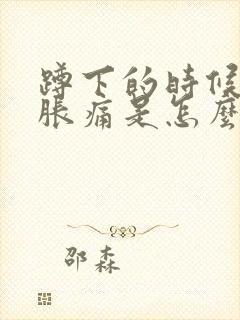 蹲下的時候
脹痛是怎麼
邵森